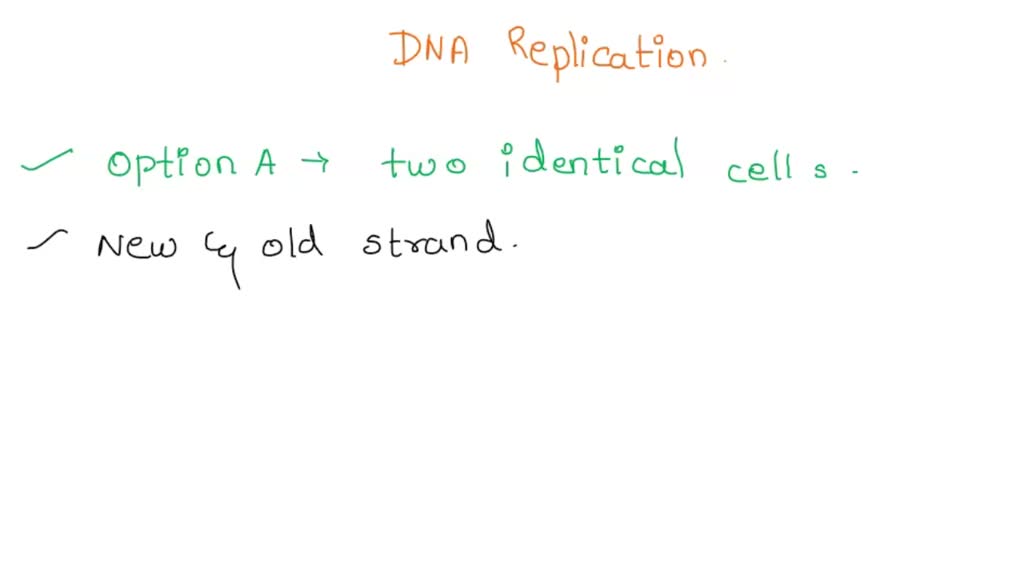 DNA Replication.
Option A → two identical cells.
New & old strand.